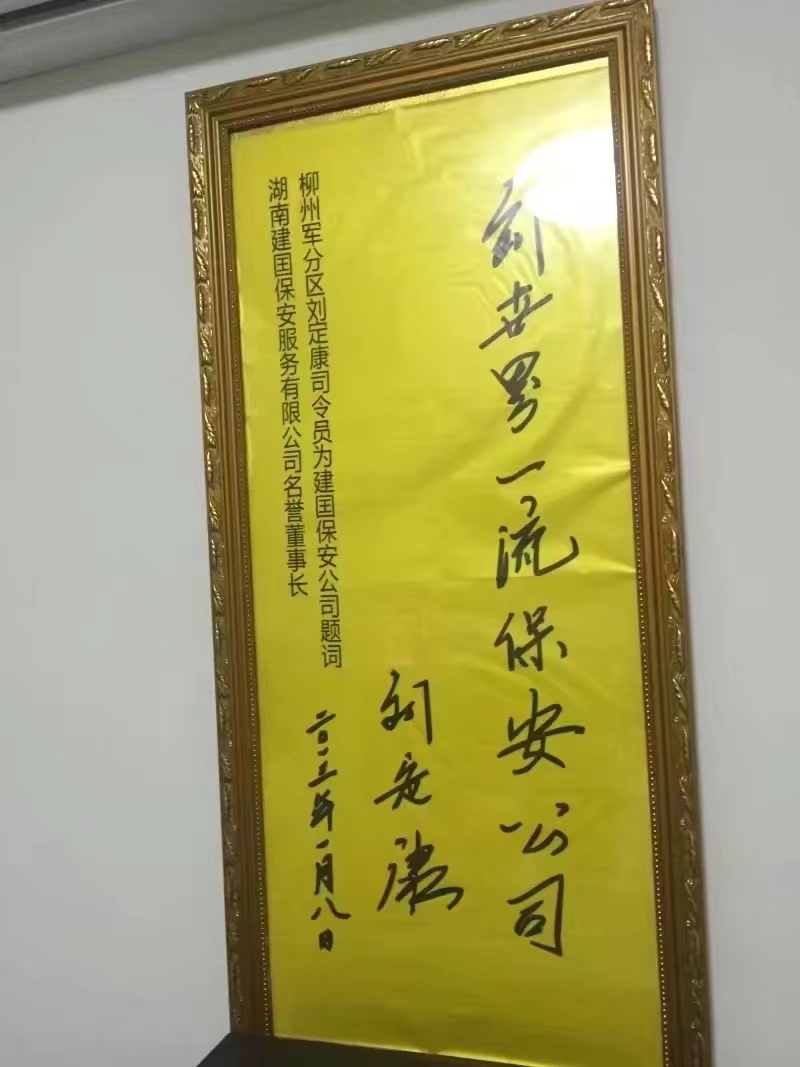 创世界一流保安公司
刘定康
柳州军分区刘定康司令员为建囯保安公司题词
湖南建囯保安服务有限公司名誉董事长
二0一三年一月八日